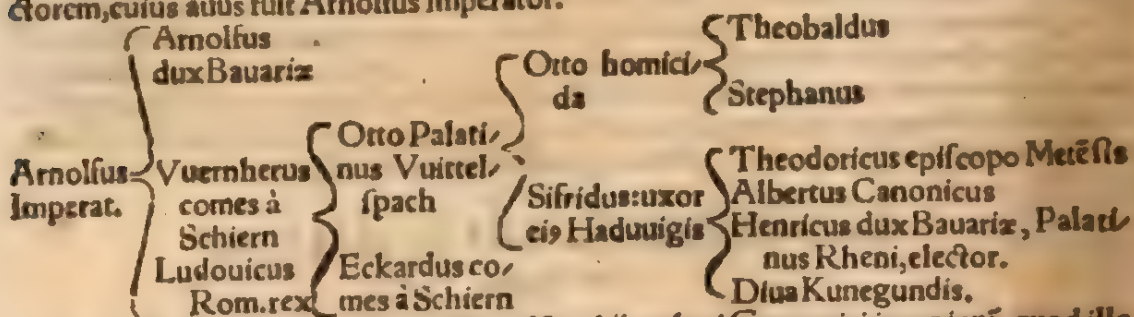 ctorem, cuius auus fuit Arnolfus Imperator.
Arnolfus
Imperat.
Arnolfus
dux Bauariæ
Vuernherus
comes à
Schiern
Ludouicus
Rom.rex
Otto Palati/
nus Vuittel/
ſpach
Eckardus co/
mes à Schiern
Otto homici/
da
Sifridus:uxor
eiꝰ Haduuigis
Theobaldus
Stephanus
Theodoricus epiſcopo Metēſis
Albertus Canonicus
Henricus dux Bauariæ, Palati/
nus Rheni,elector.
Diua Kunegundis.